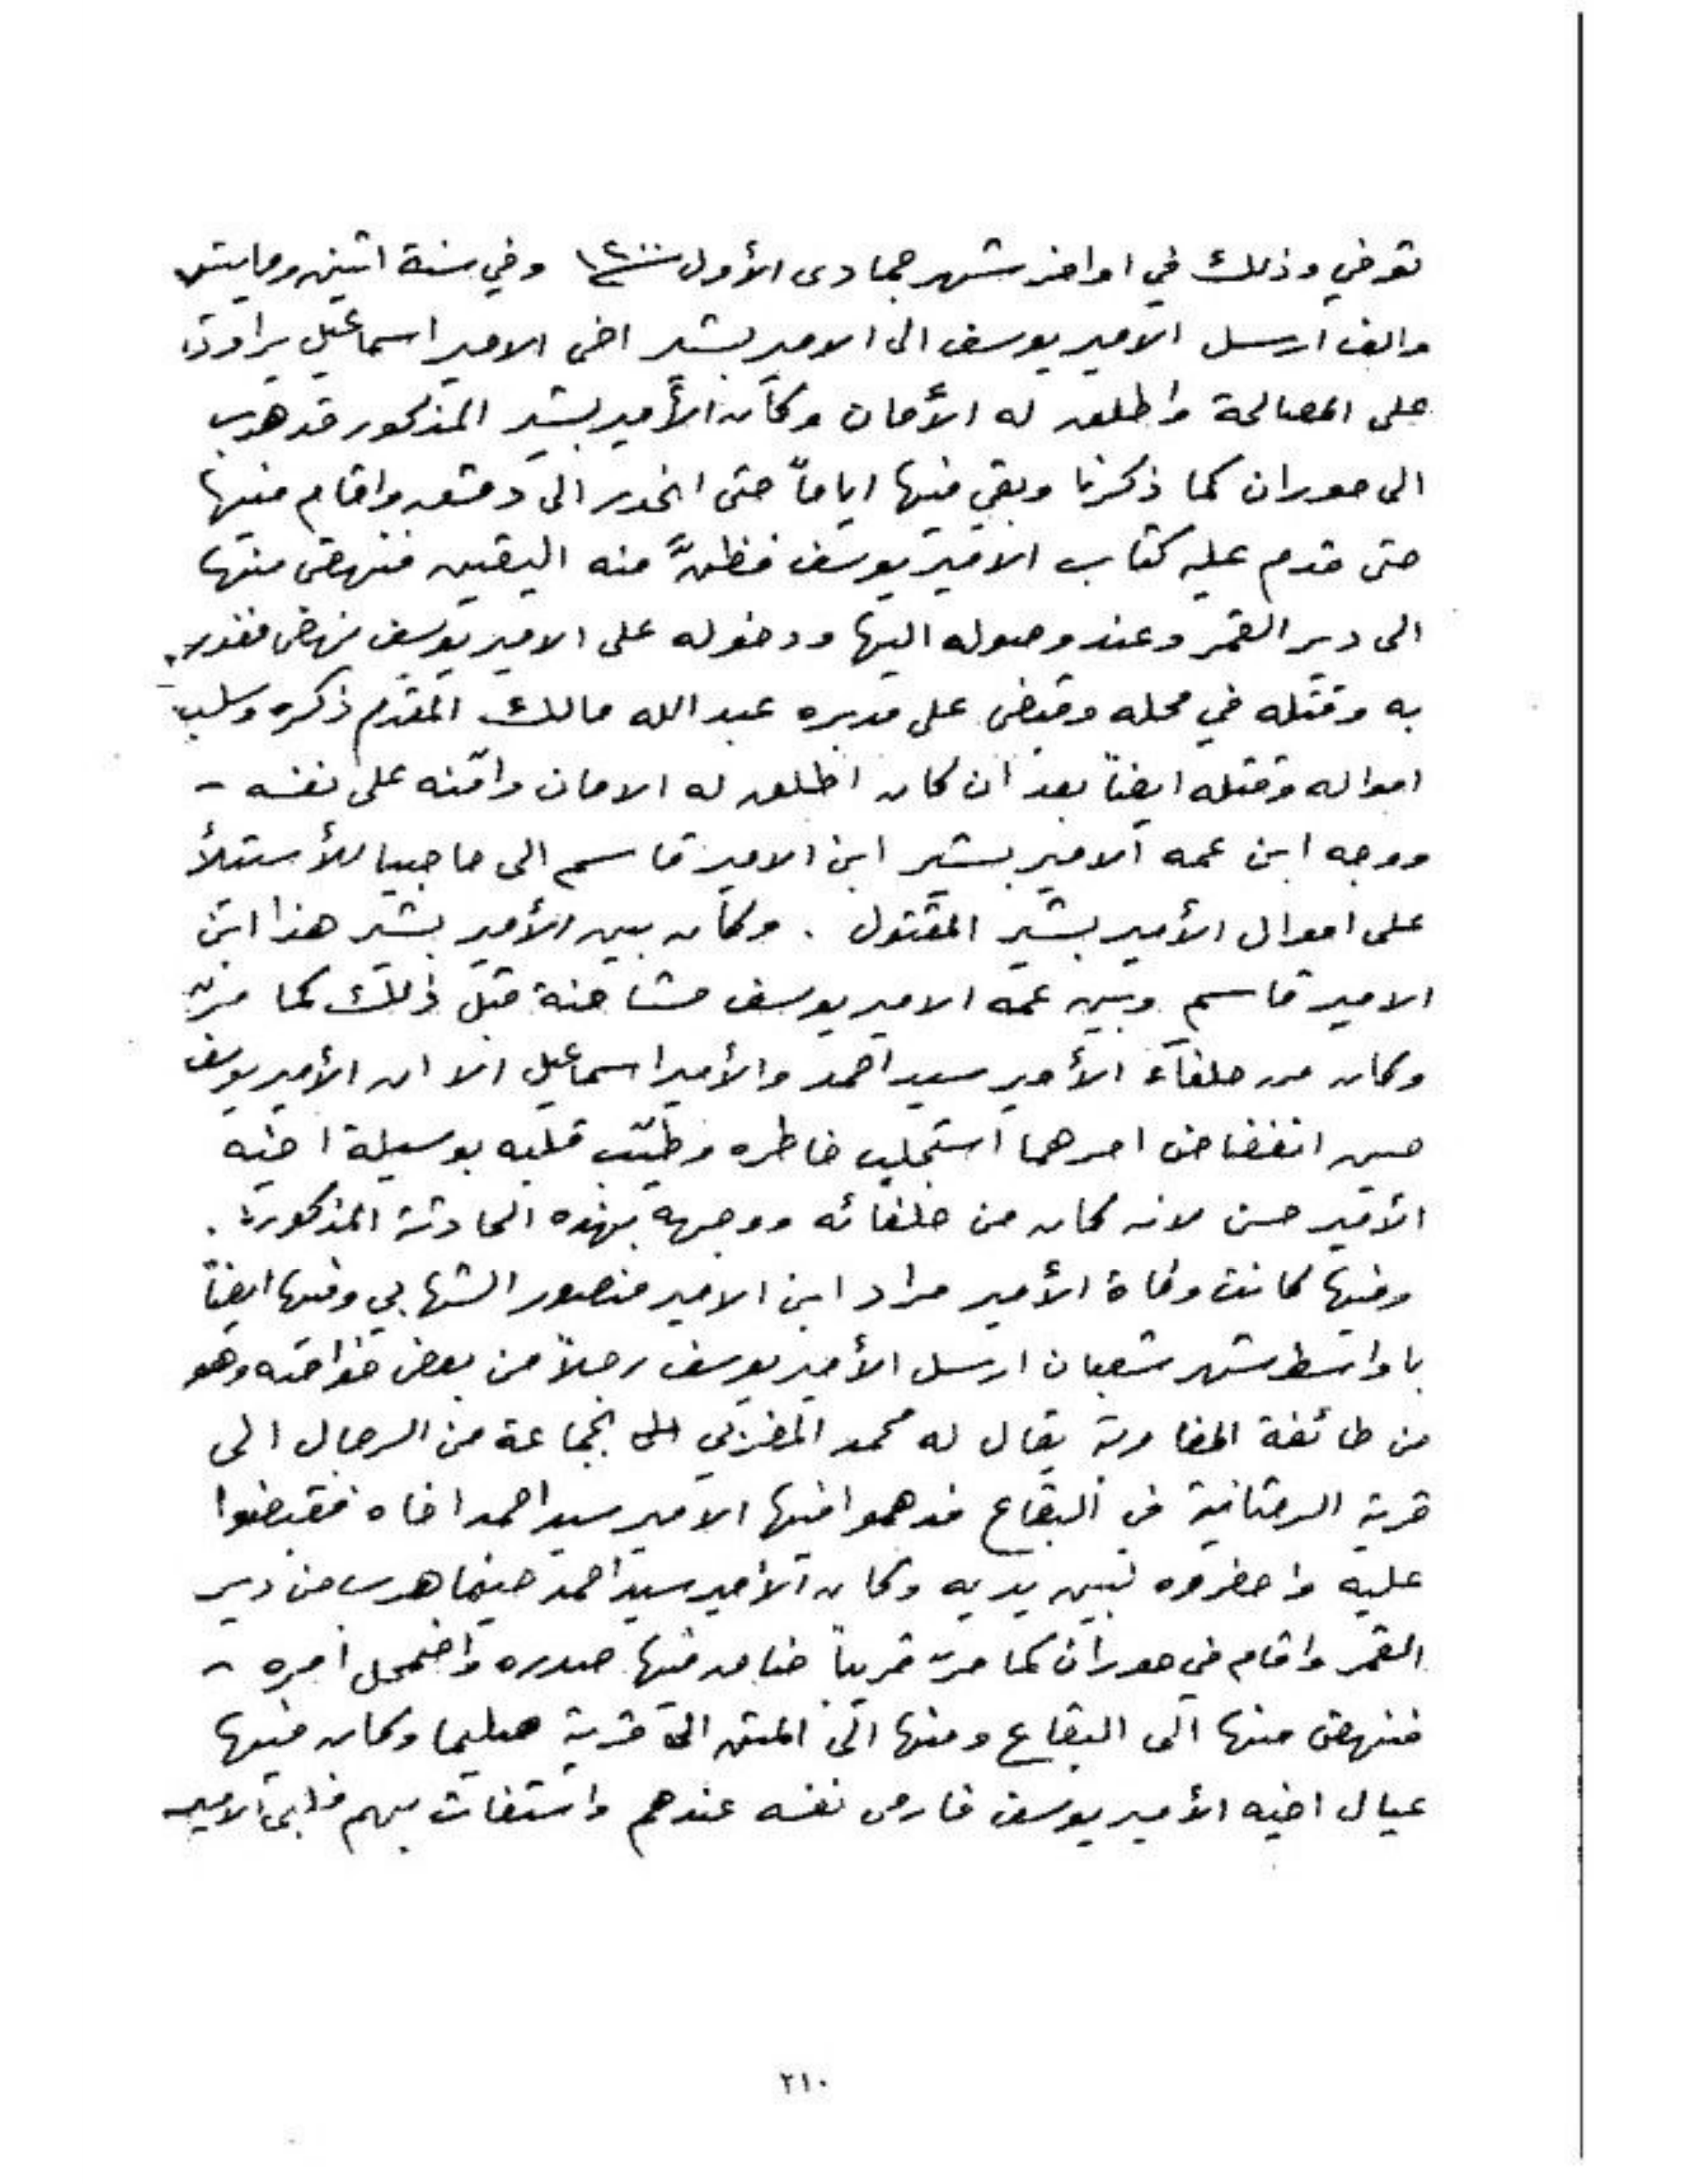 توفي وذلك في اواخر شهر جمادى الأول سنة ١٢٠٠ وفي سنة اثنين ومايتين
والف ارسل الامير يوسف الى الامير بشير اخى الامير اسماعيل يراوده
على المصالحة واطلق له الأمان وكان الأمير بشير المذكور قد هرب
الى حوران كما ذكرنا وبقي فيها اياماً حتى انحدر الى دمشق واقام فيها
حتى قدم عليه كتاب الامير يوسف فظنَّ منه اليقين فنهض منها
الى دير القمر وعند وصوله اليها ودخوله على الامير يوسف نهض فغدر
به وقتله في محله وقبض على مدبره عبد الله مالك المقدم ذكره وسلب
امواله وقتله ايضاً بعد ان كان اطلق له الامان وامّنه على نفسه -
ووجه ابن عمه الامير بشير ابن الامير قاسم الى حاصبيا للأستلأ
على اموال الأمير بشير المقتول . وكان بين الأمير بشير هذا ابن
الامير قاسم وبين عمه الامير يوسف مشاحنة قبل ذلك كما مرّ
وكان من حلفآء الأمير سيد احمد والأمير اسماعيل الا ان الأمير يوسف
حين انفضاض امرهما استجلب خاطره وطيّب قلبه بوسيلة اخيه
الأمير حسن لانه كان من حلفائه ووجهه بهذه الحادثة المذكورة .
وفيها كانت وفاة الأمير مراد ابن الامير منصور الشهابي وفيها ايضاً
باواسط شهر شعبان ارسل الأمير يوسف رجلاً من بعض خواصه وهو
من طائفة المغاربة يقال له محمد المغربي بجماعة من الرجال الى
قرية الرمتانية في البقاع فدهموا فيها الامير سيد احمد اخاه فقبضوا
عليه واحضروه لبين يديه وكان الأمير سيد احمد حينما هرب من دير
القمر واقام في حوران كما مرّ قريباً ضاق فيها صدره واضمحل امره -
فنهض منها الى البقاع ومنها الى المتن الى قرية صليما وكان فيها
عيال اخيه الأمير يوسف فارمى نفسه عندهم واستغاث بهم فابى الامير
٢١٠